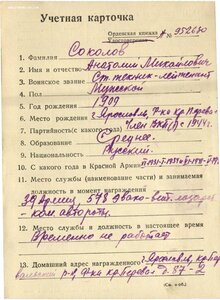 Учетная карточка
Орденская книжка № 952680
Удостоверение
1. Фамилия Соколов
2. Имя и отчество Анатолий Михайлович
3. Воинское звание Ст. техник-лейтенант
4. Пол Мужской
5. Год рождения 1909
6. Место рождения г. Ярославль,
7. Партийность(с какого года) Член ВКП(б) с 1944 г.
8. Образование Среднее.
9. Национальность Русский.
10. С какого года в Красной Армии
11. Место службы (наименование части) и занимаемая
должность в момент награждения
39 армия, 598
ком авто роты
12. Место службы и должность в настоящее время
Временно не работает
13. Домашний адрес награжденного г. Ярославль,
(См. н об.)